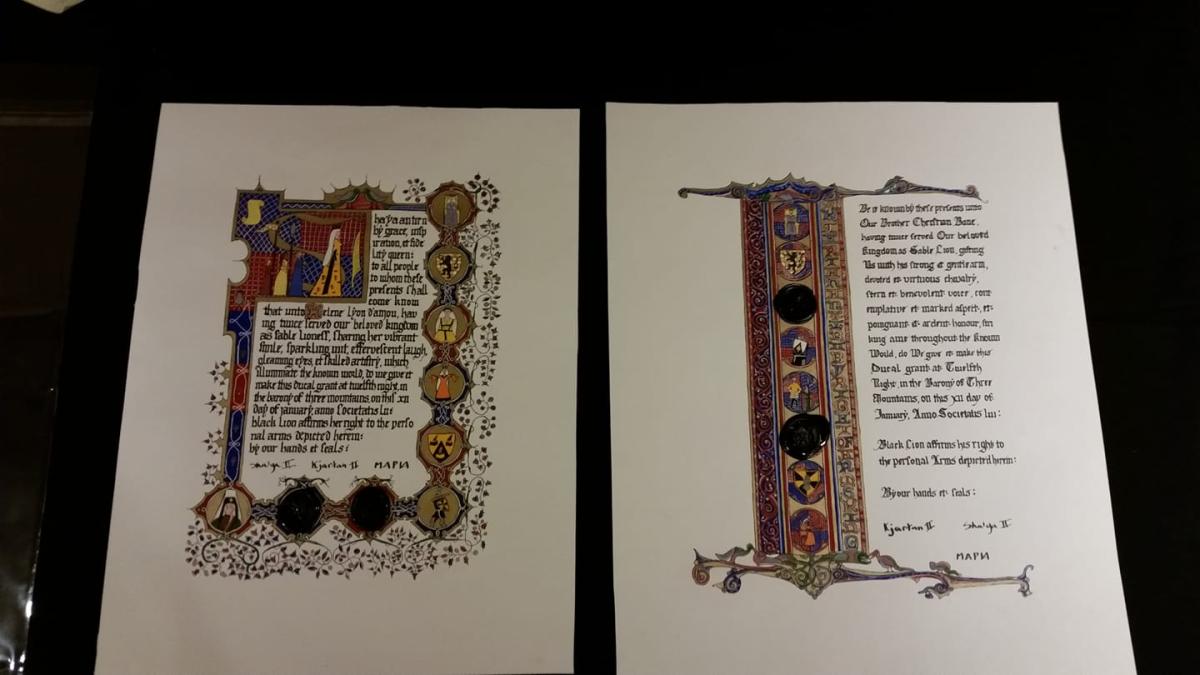 by grace, insp
uration, et fide
lity queen:
to all people
to whom these
presents shall
come know
that unto Helene Lyon d'anjou, hav
ing twice served our beloved kingdom
as sable lioness, sharing her vibrant
smile, sparkling wit, effervescent laugh,
gleaming eyes, et skilled artistry, which
illuminate the known world, do we give et
make this ducal grant at twelfth night, in
the barony of three mountains, on this xii
day of january, anno societatis lii:
black lion affirms her right to the perso
nal arms depicted herein:
by our hands et seals:
Sha'ya II Kjartan II МАРИ
Be it known by these presents unto
Our Brother Christian Bane,
having twice served Our beloved
Kingdom as Sable Lion, gifting
Us with his strong et gentle arm,
devoted et virtuous chivalry,
stern et benevolent voice, cont
emplative et marked aspect, et
poignant et ardent honour,
king ame throughout the Known
World, do We Give et make this
Ducal grant at Twelfth
Night, in the Barony of Three
Mountains, on this XII day of
January, Anno Societatis lii:
Black Lion affirms his right to
the personal Arms depicted herein:
By our hands et seals:
Kjartan II Sha'ya II
МАРИ